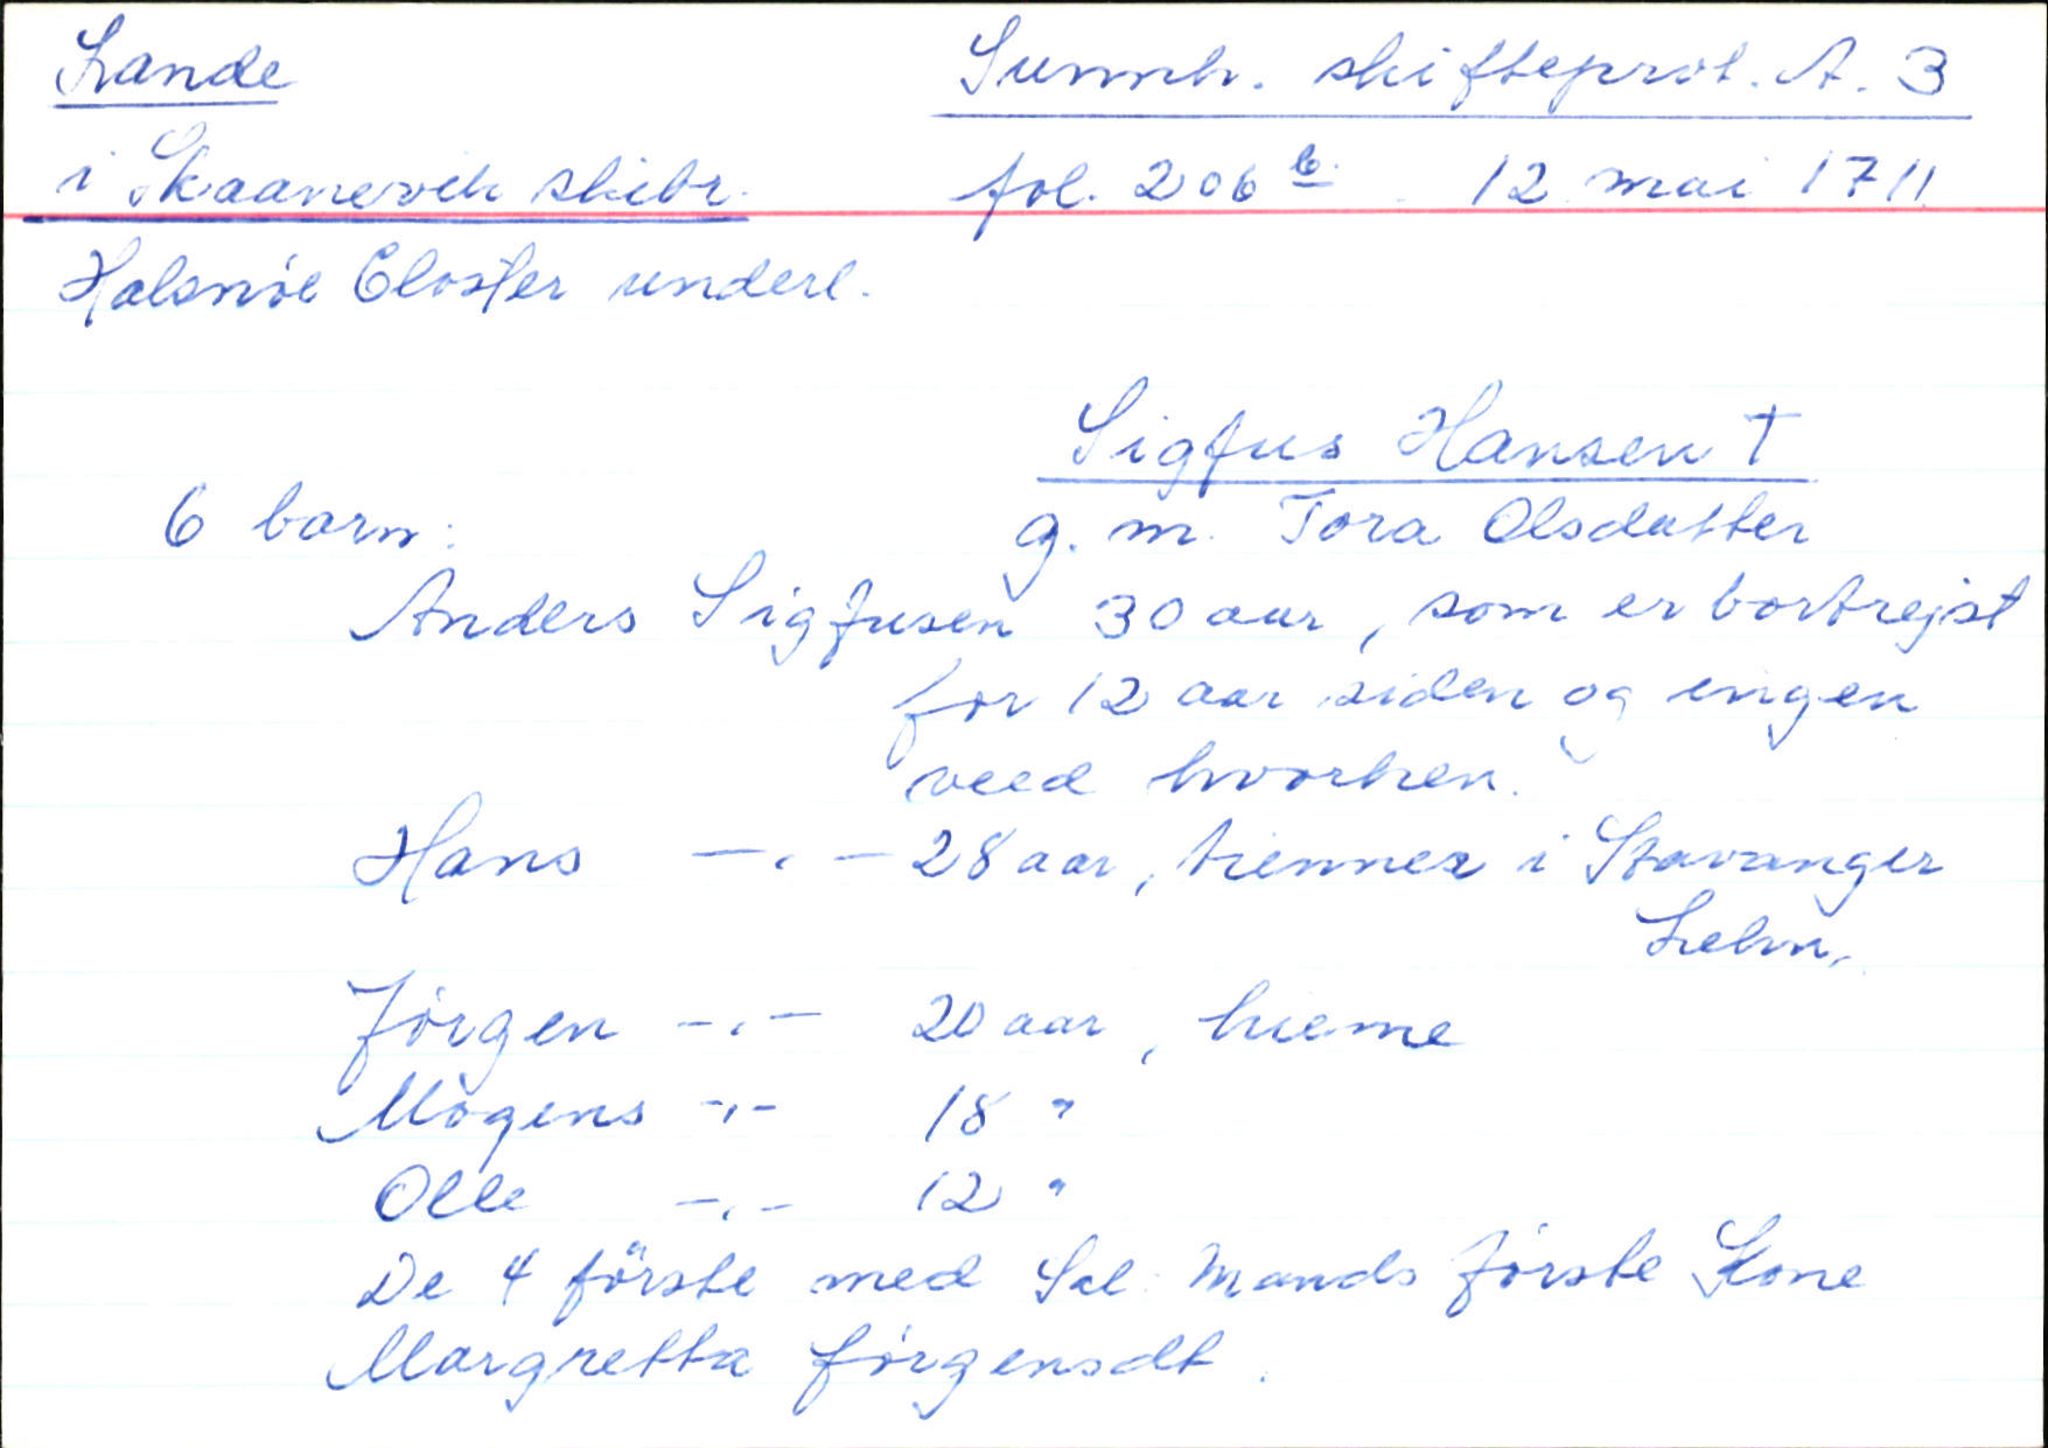 Lande
Sunnh. skifteprot. A. 3
i Skaanevik skibr.
fol. 206 b. 12 mai 1711
Halsnøe Closter underl.
Sigfus Hansen †
6 barn:
g. m. Tora Olsdatter
Anders Sigfusen 30 aar, som er bortrejst
for 12 aar siden og ingen
veed hvorhen.
Hans —.— 28 aar, tienner i Stavanger
Lehn.
Jørgen —.— 20 aar, hieme
Mogens -.- 18 "
Olle —.— 12 "
De 4 förste med Sal. Mands første Kone
Margretta Jørgensdt.